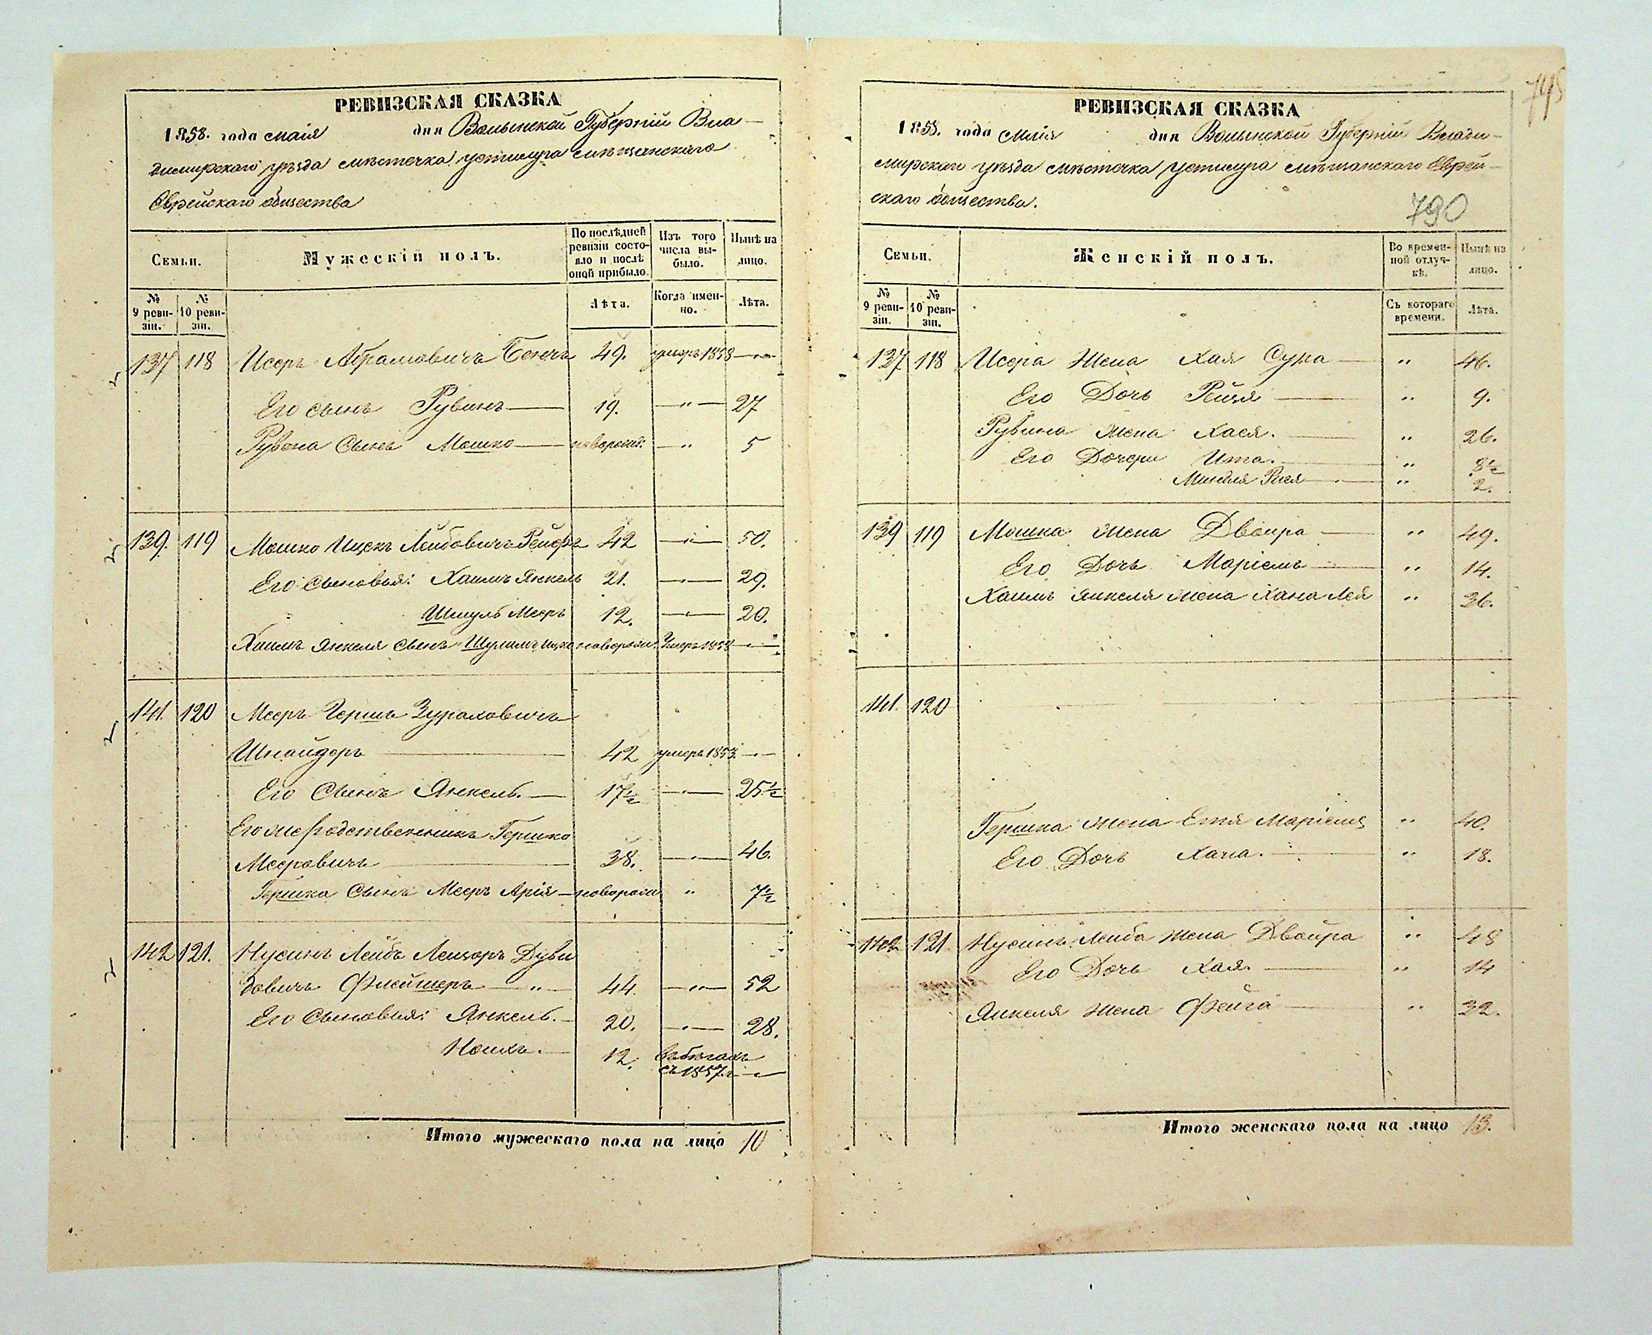 745
РЕВИЗСКАЯ СКАЗКА
1858. года маія дня Волынской Губерніи Вла-
димирскаго уѣзда мѣстечка Устилуга мѣщанскаго
Еврейскаго общества
Семьи.
Мужескій полъ.
По послѣдней ревизіи состояло и послѣ оной прибыло.
Изъ того числа выбыло.
Нынѣ на лицо.
№ 9 ревизіи.
№ 10 ревизіи.
Лѣта.
Когда именно.
Лѣта.
137 118 Исеръ Абрамовичъ 49. умеръ 1853 — „ —
Его сынъ Рувинъ — 19. — „ — 27
Рувена Сынъ Мошко — новорожд. — „ 5
139. 119 Мошко Ицекъ Лейбовичъ 42 — „ — 50.
Его сыновья: Хаимъ Янкель 21. — „ — 29.
Шмуль Мееръ 12. — „ — 20.
Хаимъ Янкеля сынъ Шулимъ новорожд. Умеръ — „ —
141. 120 Мееръ Гершъ
Шнайдеръ — 42 умеръ 1853 — „ —
Его Сынъ Янкель. — 17½ — „ — 25½
Гершко
Мееровичъ — 38. — „ — 46.
Гершка Сынъ Мееръ Арія — новорожд. „ 7½
142 121. Нусинъ Лейба Дуви
довичъ Флейшеръ — „ — 44. — „ — 52
Его Сыновья: Янкель. — 20. — „ — 28.
12. въ бѣгахъ
съ 1857. г. —
Итого мужескаго пола на лицо 10
РЕВИЗСКАЯ СКАЗКА
1858. года маія дня Волынской Губерніи Влади-
мирскаго уѣзда мѣстечка Устилуга мѣщанскаго Еврей-
скаго общества.
790
Семьи.
Женскій полъ.
Во временной отлучкѣ.
Нынѣ на лицо.
№ 9 ревизіи.
№ 10 ревизіи.
Съ котораго времени.
Лѣта.
137 118 Исера Жена Хая Сура — „ 46.
Его Дочь Рейзя — „ 9.
Рувина жена Хася. — „ 26.
Его Дочери Ита. — „ 8½
— „ 2.
139 119 Мошка жена Двойра — „ 49.
Его Дочь Маріемъ — „ 14.
Хаимъ Янкеля жена Хана Лея „ 36.
141. 120
Гершка жена Етя Маріемъ „ 40.
Его Дочь Хана. — „ 18.
142 121. Нусинъ Лейба жена Двойра „ 48
Его Дочь Хая — „ 14
Янкеля жена Фейга — „ 32.
Итого женскаго пола на лицо 13.